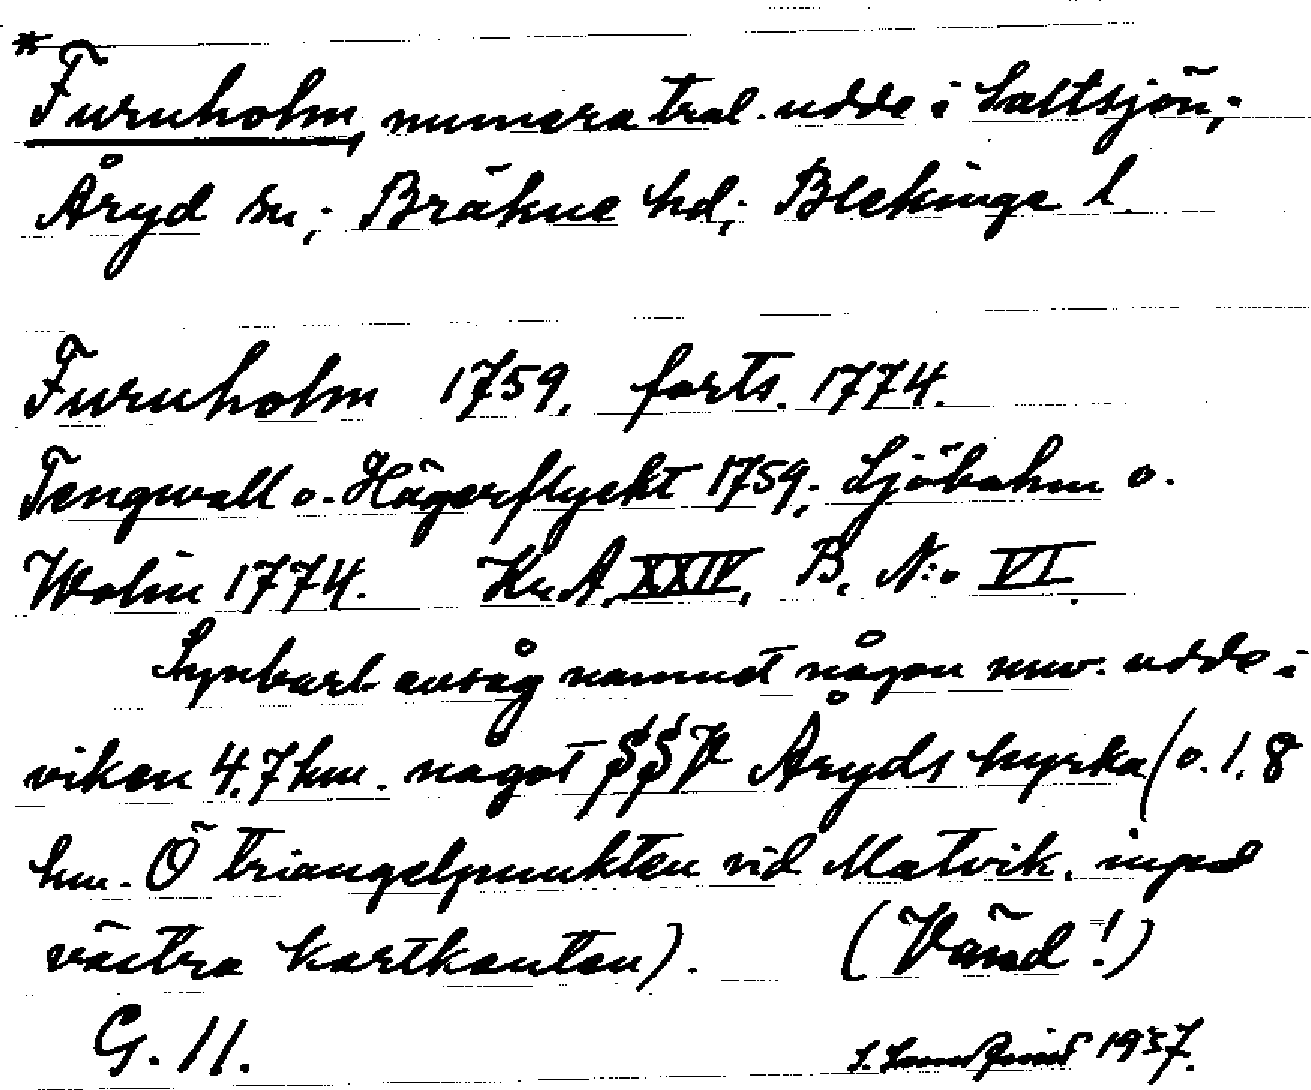 *Furuholm, numera tral. udde i Saltsjön,;
Åryd sn,; Bräkne hd,; Blekinge l.
Furuholm 1759, forts. 1774.
Tengwall o. Hägerflyckt 1759,; Sjöbohm o.
Wolin 1774. Kr.A. XXIV, B, N:o VI.
Synbarl. avsåg namnet någon nuv. udde i
viken 4,7 km. något SSV Åryds kyrka (o. 1,8
km. Ö triangelpunkten vid Matvik, invid
västra kartkanten). (Vänd!)
G. 11. 1937.